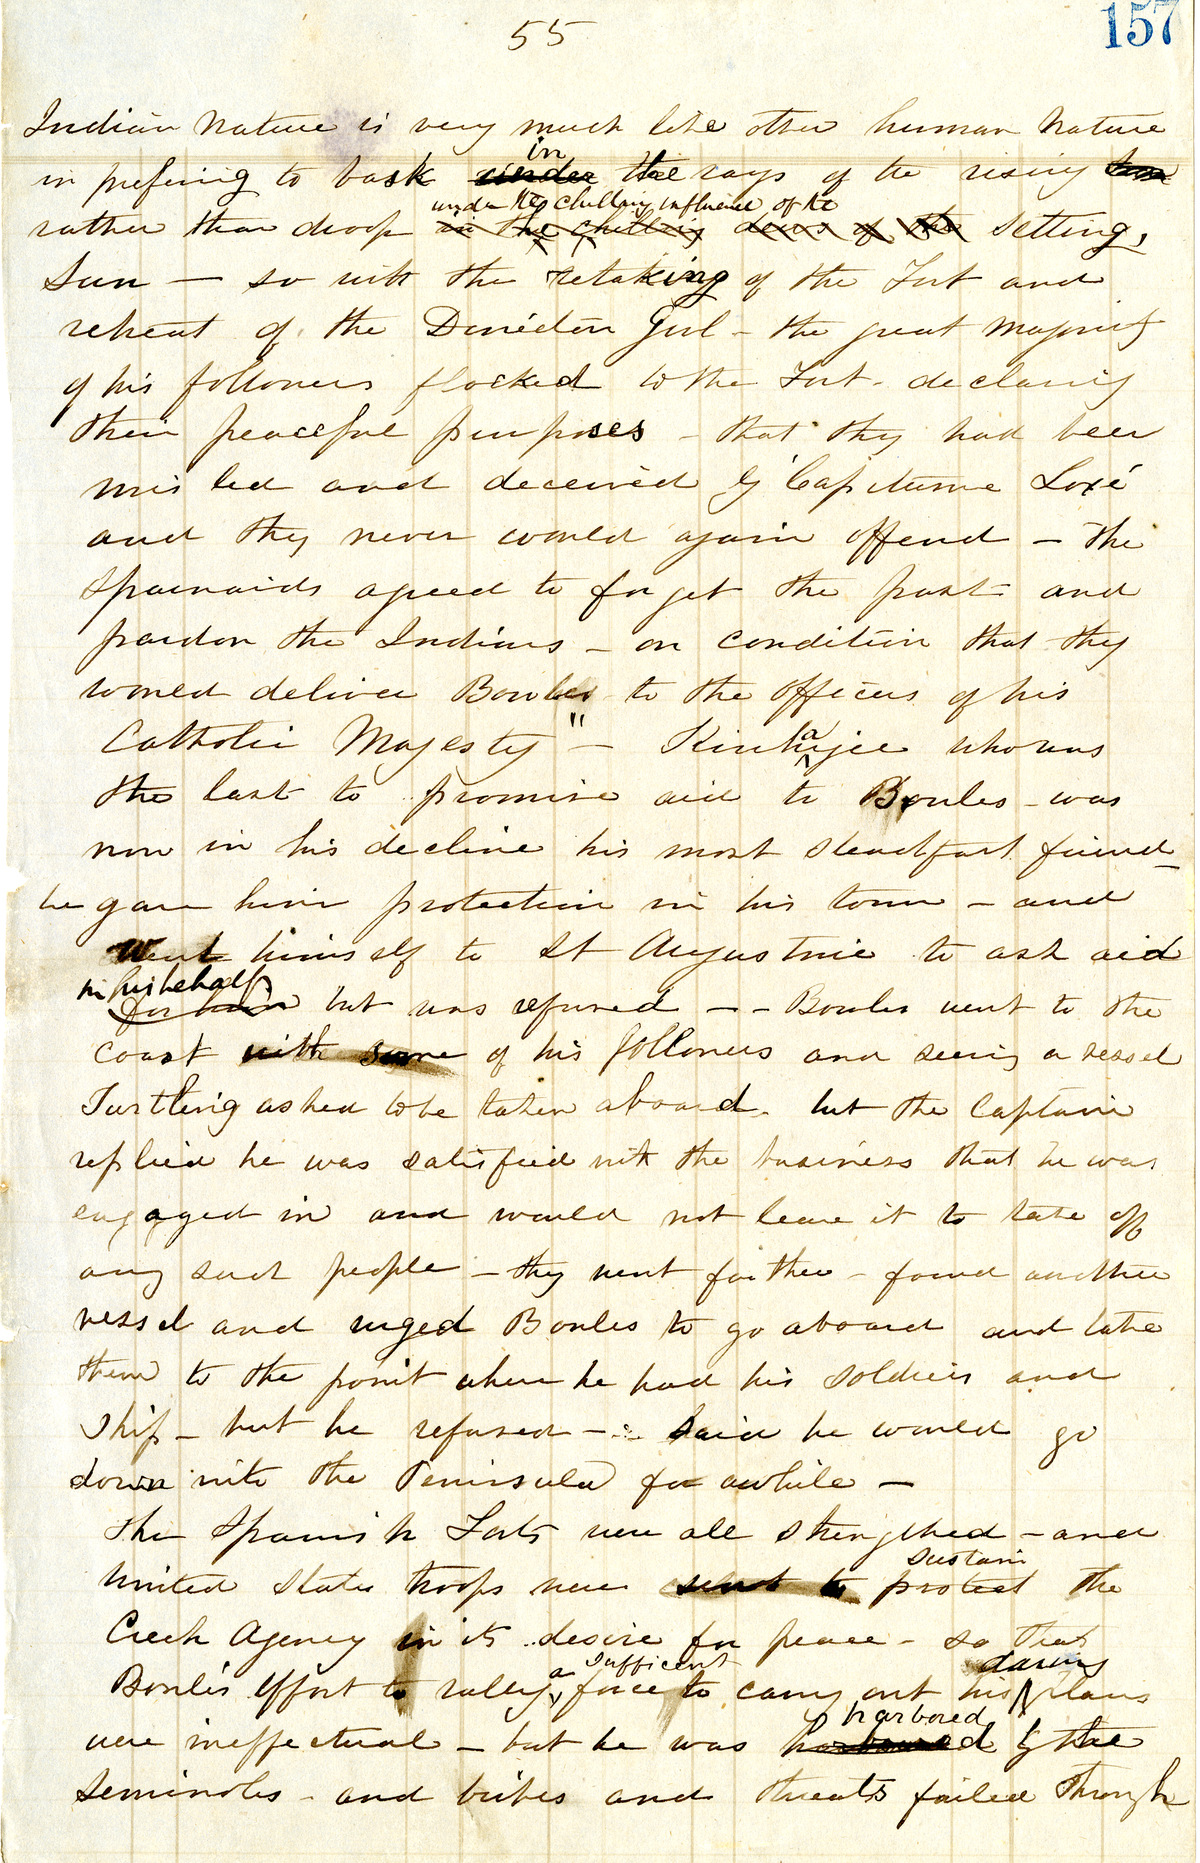 55
157
Indian Nature is very much like other human Nature
in prefering to bask under in the rays of the rising Sun
under the chilling influence of the
rather than droop in the chilling dews of the setting,
Sun — so with the retaking of the Fort and
retreat of the Director Genl - the great majority
of his followers flocked to the Fort - declaring
their peaceful purposes - that they had been
mis led and deceived by Capitaine Loxé
and they never would again offend — the
Spainards agreed to forget the past and
pardon the Indians - on condition that they
would deliver Bowles to the officers of his
Catholic Majesty" — Kinhajee who was
a
the last to promise aid to Bowles - was
now in his decline his most steadfast friend
he gave him protection in his town - and
went himself to St Augustine to ask aid
in his behalf
for him but was refused - - Bowles went to the
coast with some of his followers and seeing a vessel
Turtling asked to be taken aboard. but the Captain
replied he was satisfied with the business that he was
engaged in and would not leave it to take off
any such people - they went further - found another
vessel and urged Bowles to go aboard and take
them to the point where he had his soldiers and
Ship - but he refused - said he would go
down into the Peninsula for awhile —
The Spanish Forts were all strengthed - and
sustain
United States troops were sent to protect the
Creek Agency in its desire for peace - so that
a sufficent daring
Bowles effort to rally force to carry out his plans
harbored
were ineffectual - but he was harbored by the
Seminoles - and bribes and threats failed through